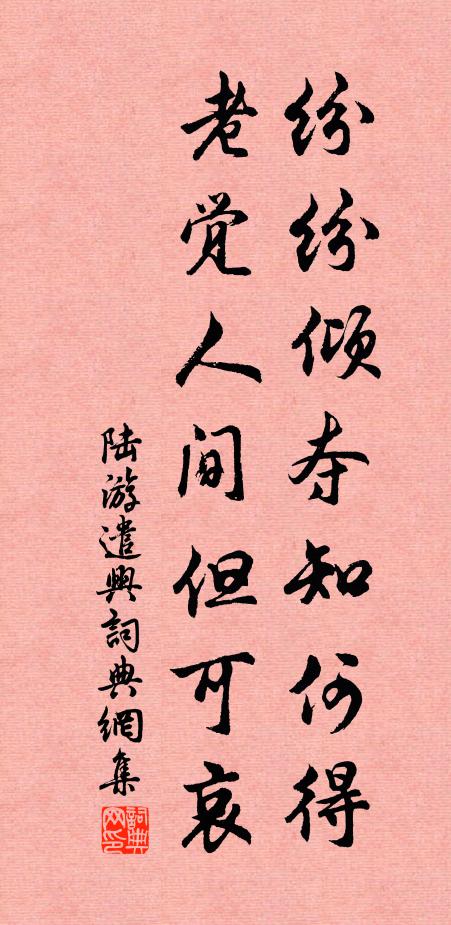 纷纷倾夺知何得
老觉人间但可哀
陆游遣興詞典網集
詞典
网印